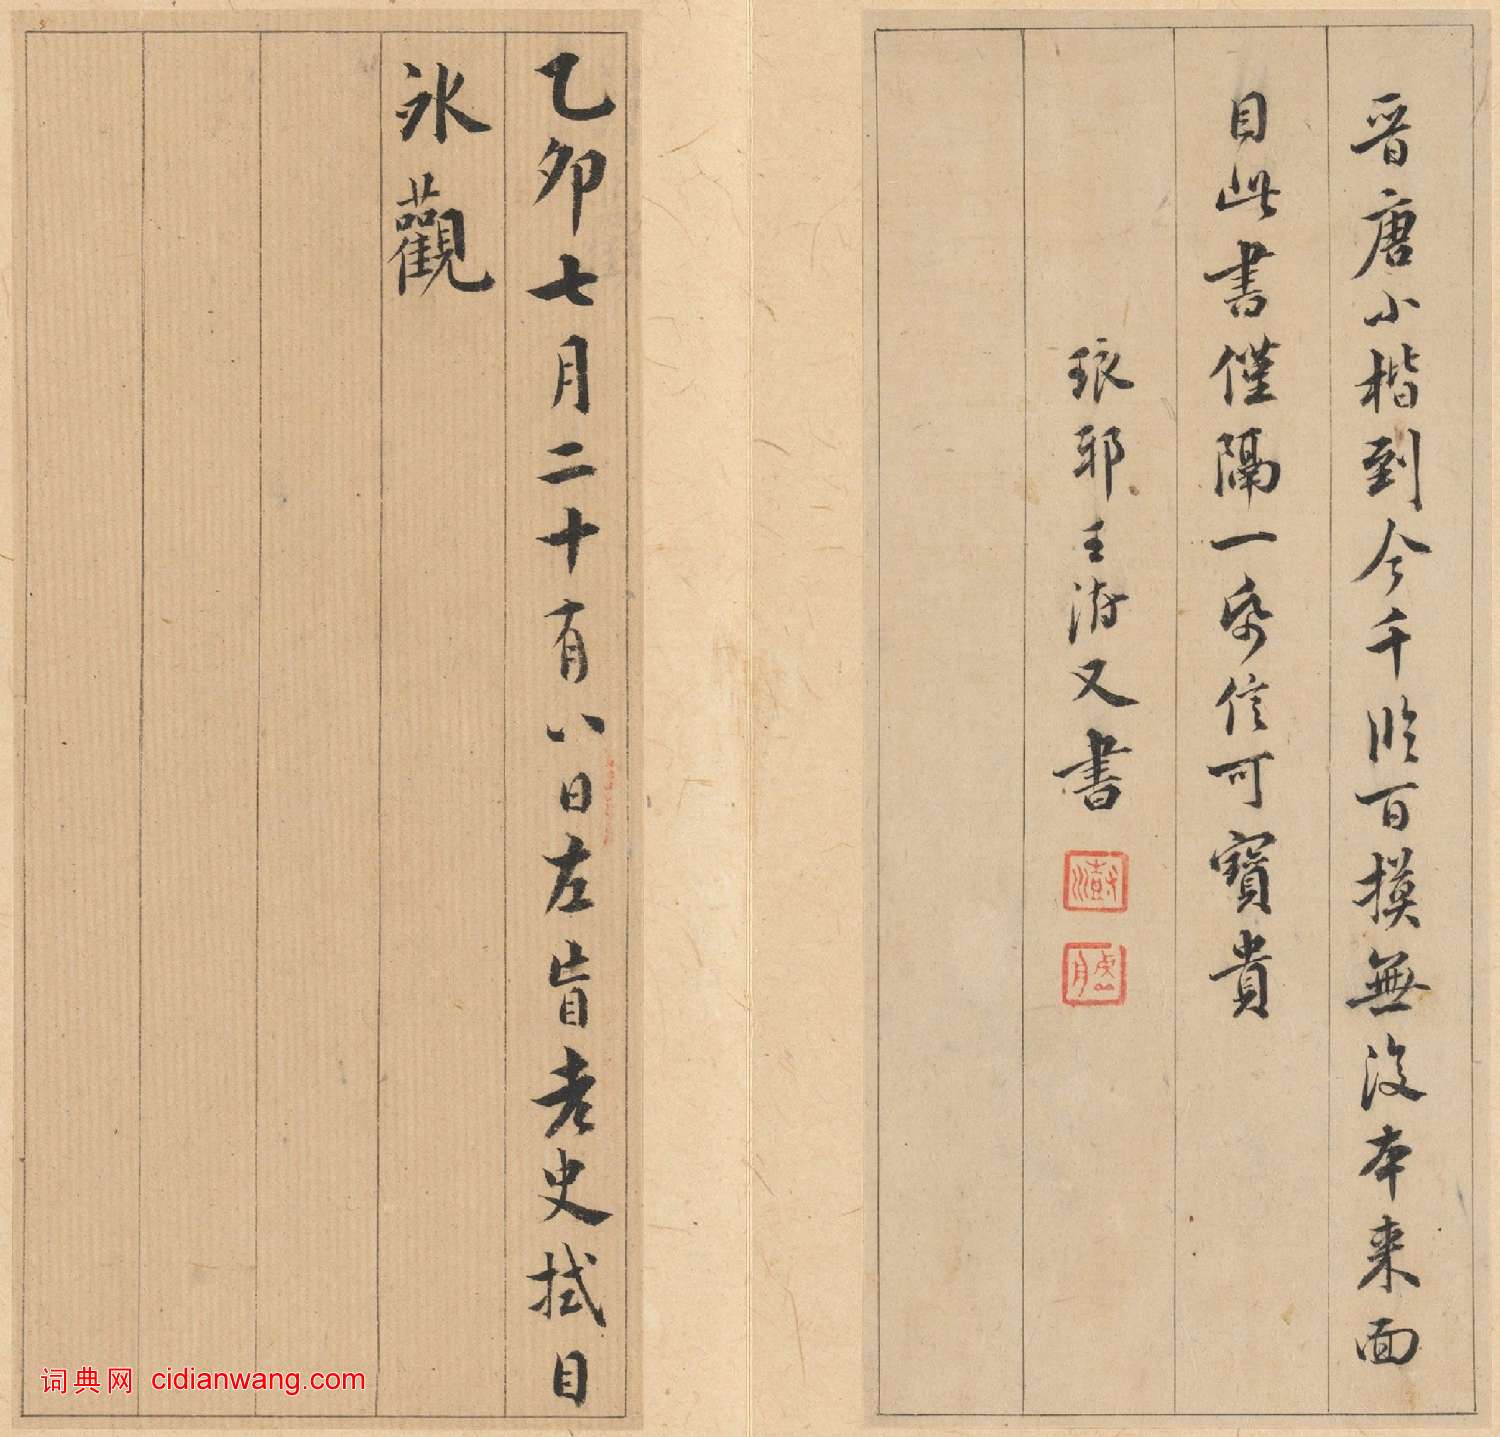 晋唐小楷到今千臨百摸無復本来面
目此書僅隔一紙信可寶貴
琅耶王澍又書
澍
虛舟
乙卯七月二十有八日左盲老史拭目
冰觀
词典网 cidianwang.com